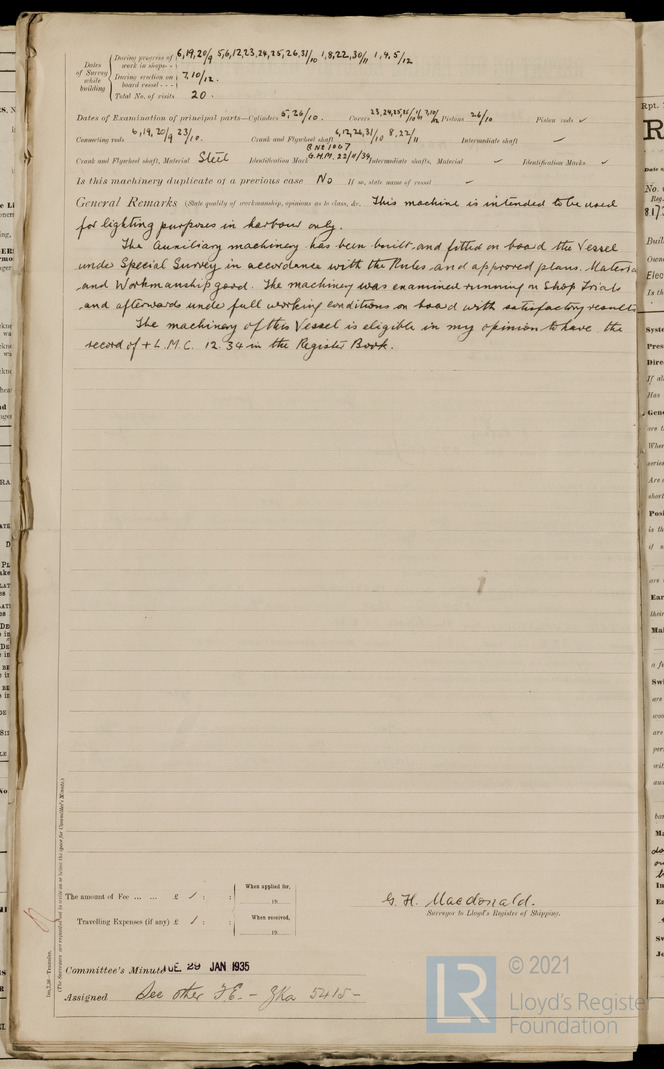 Dates of Survey while building
During progress of work in shops - - 6,19,20/9 5,6,12,23,24,25,26,31/10 1,8,22,30/11 1,4,5/12
During erection on board vessel - - - 7,10/12.
Total No. of visits 20.
Dates of Examination of principal parts—Cylinders 5,26/10. Covers Pistons 26/10 Piston rods ✓
Connecting rods 6,19,20/9 23/10. Crank and Flywheel shaft 6,12,26,31/10 8,22/11 Intermediate shaft —
Crank and Flywheel shaft, Material Steel Identification Mark B No 1067 G.H.M. 22/11/34 Intermediate shafts, Material — Identification Marks ✓
Is this machinery duplicate of a previous case No If so, state name of vessel —
General Remarks (State quality of workmanship, opinions as to class, &c. This machine is intended to be used
for lighting purposes in harbour only.
The Auxiliary machinery has been built and fitted on board the Vessel
under Special Survey in accordance with the Rules and approved plans. Materia
and Workmanship good. The machinery was examined running in Shop Trials
and afterwards under full working conditions on board with satisfactory results
The machinery of this Vessel is eligible in my opinion to have the
record of + L.M.C. 12.34 in the Register Book.
The amount of Fee ... ... £ / : :
When applied for,
19
Travelling Expenses (if any) £ / : :
When received,
19
G. H. Macdonald.
Surveyor to Lloyd's Register of Shipping.
Committee's Minute TUE. 29 JAN 1935
Assigned See other F.E. –
© 2021
LR
Lloyd's Register
Foundation